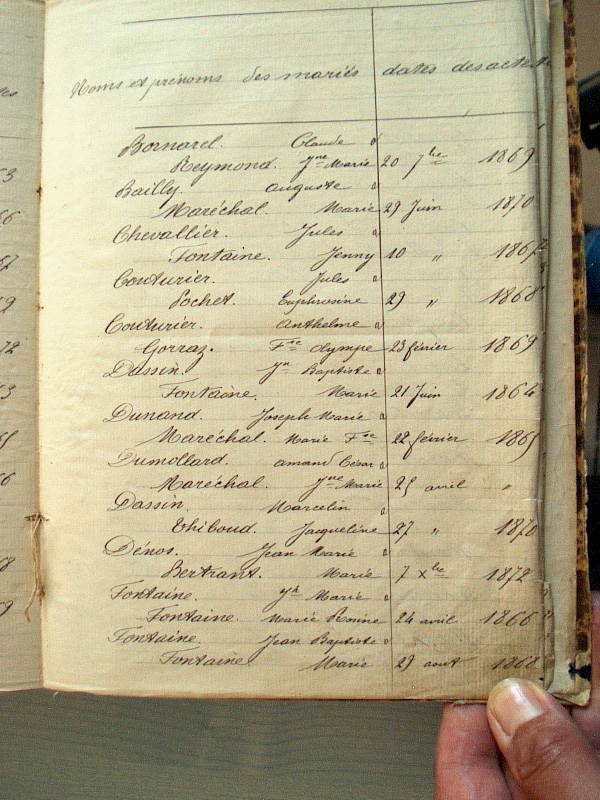 Noms et prénoms des mariés dates des actes
Bornard. Claude à
Reymond. Jne Marie 20 7bre 1869
Bailly. auguste à
Maréchal. Marie 29 Juin 1870
Chevallier. Jules à
Fontaine. Jenny 10 „ 1867
Couturier. Jules à
Pochet. Euphrosine 29 „ 1868
Couturier. anthelme à
Gorraz. Fse Olympe 23 février 1869
Dassin. Jn Baptiste à
Fontaine. Marie 21 Juin 1864
Dunand. Joseph Marie à
Maréchal. Marie Fse 22 février 1865
Dumollard. amand César à
Maréchal. Jne Marie 25 avril „
Dassin. Marcelin à
Thiboud. Jacqueline 27 „ 1870
Dénos. Jean Marie à
Bertrant. Marie 7 Xbre 1872
Fontaine. Jh Marie à
Fontaine. Marie 24 avril 1866
Fontaine. Jean Baptiste à
Fontaine Marie 29 aout 1868